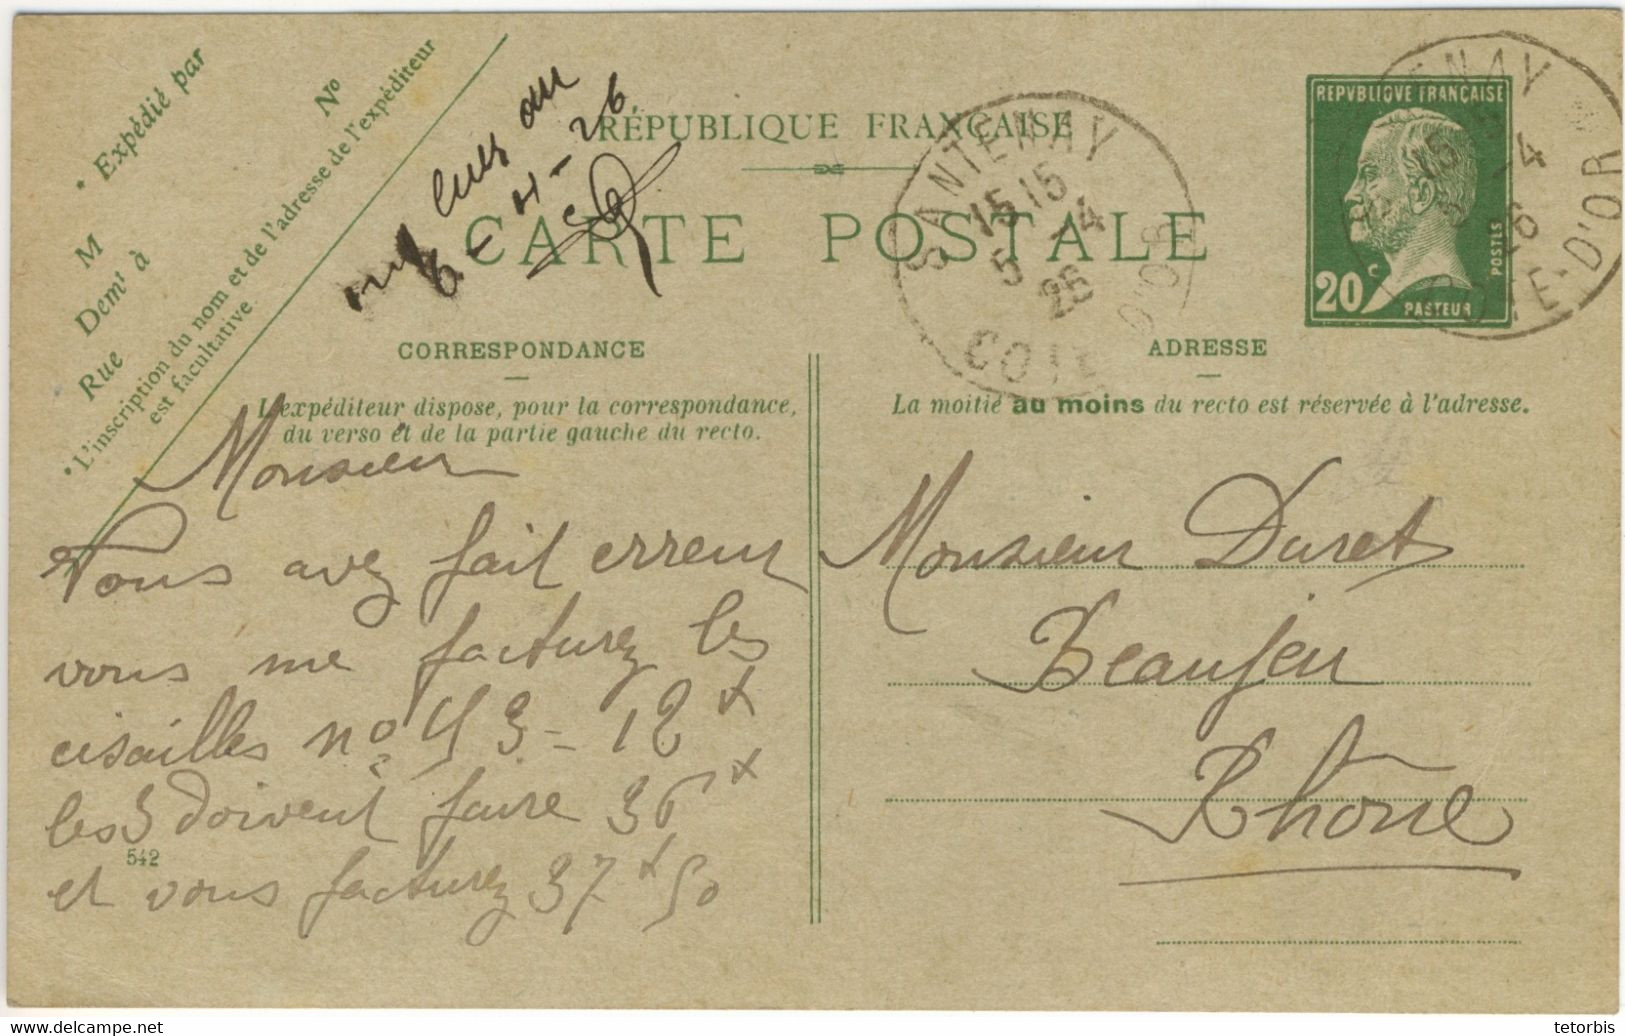 * Expédié par
M
Demt à
Rue
No
* L'inscription du nom et de l'adresse de l'expéditeur
est facultative.
6-4-26
RÉPUBLIQUE FRANÇAISE
CARTE POSTALE
SANTENAY
15 15
5 -4
26
COTE-D'OR
REPVBLIQVE FRANÇAISE
POSTES
20c
PASTEUR
SANTENAY
15 15
5 -4
26
COTE-D'OR
CORRESPONDANCE
L'expéditeur dispose, pour la correspondance,
du verso et de la partie gauche du recto.
ADRESSE
La moitié au moins du recto est réservée à l'adresse.
Monsieur
Vous avez fait erreur
vous me facturez les
cisailles no 93 - 12 f
les 3 doivent faire 36 f
et vous facturez 37 f 50
542
Monsieur Duret
Beaujeu
Rhône
tetorbis